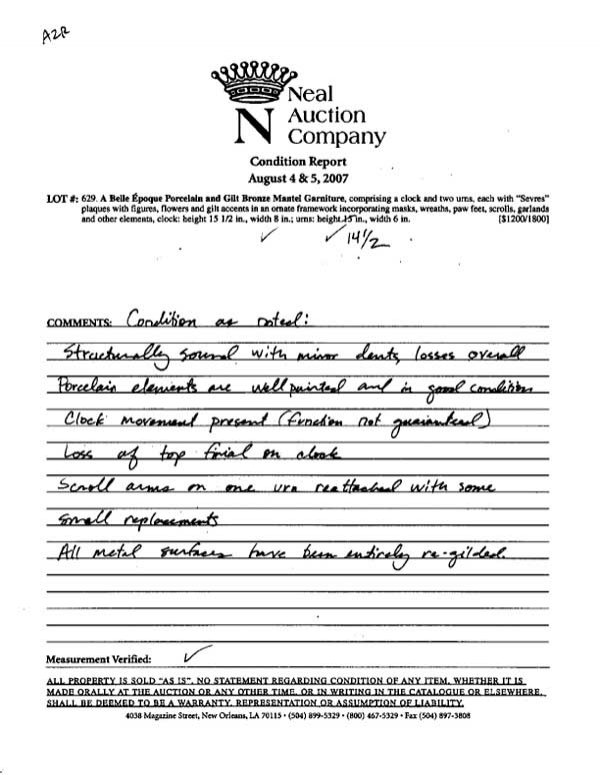 A2R
Neal
Auction
N Company
Condition Report
August 4 & 5, 2007
LOT #: 629. A Belle Époque Porcelain and Gilt Bronze Mantel Garniture, comprising a clock and two urns, each with "Sevres"
plaques with figures, flowers and gilt accents in an ornate framework incorporating masks, wreaths, paw feet, scrolls, garlands
and other elements, clock: height 15 1/2 in., width 8 in.; urns: height 15 in., width 6 in. [$1200/1800]
✓ ✓ 14 1/2
COMMENTS: Condition as noted:
Structurally sound with minor dents, losses overall
Porcelain elements are well painted and in good condition
Clock movement present (function not guaranteed)
Loss of top finial on clock
Scroll arms on one urn reattached with some
small replacements
All metal surfaces have been entirely re-gilded.
Measurement Verified: ✓
ALL PROPERTY IS SOLD "AS IS". NO STATEMENT REGARDING CONDITION OF ANY ITEM, WHETHER IT IS
MADE ORALLY AT THE AUCTION OR ANY OTHER TIME, OR IN WRITING IN THE CATALOGUE OR ELSEWHERE,
SHALL BE DEEMED TO BE A WARRANTY, REPRESENTATION OR ASSUMPTION OF LIABILITY.
4038 Magazine Street, New Orleans, LA 70115 • (504) 899-5329 • (800) 467-5329 • Fax (504) 897-3808